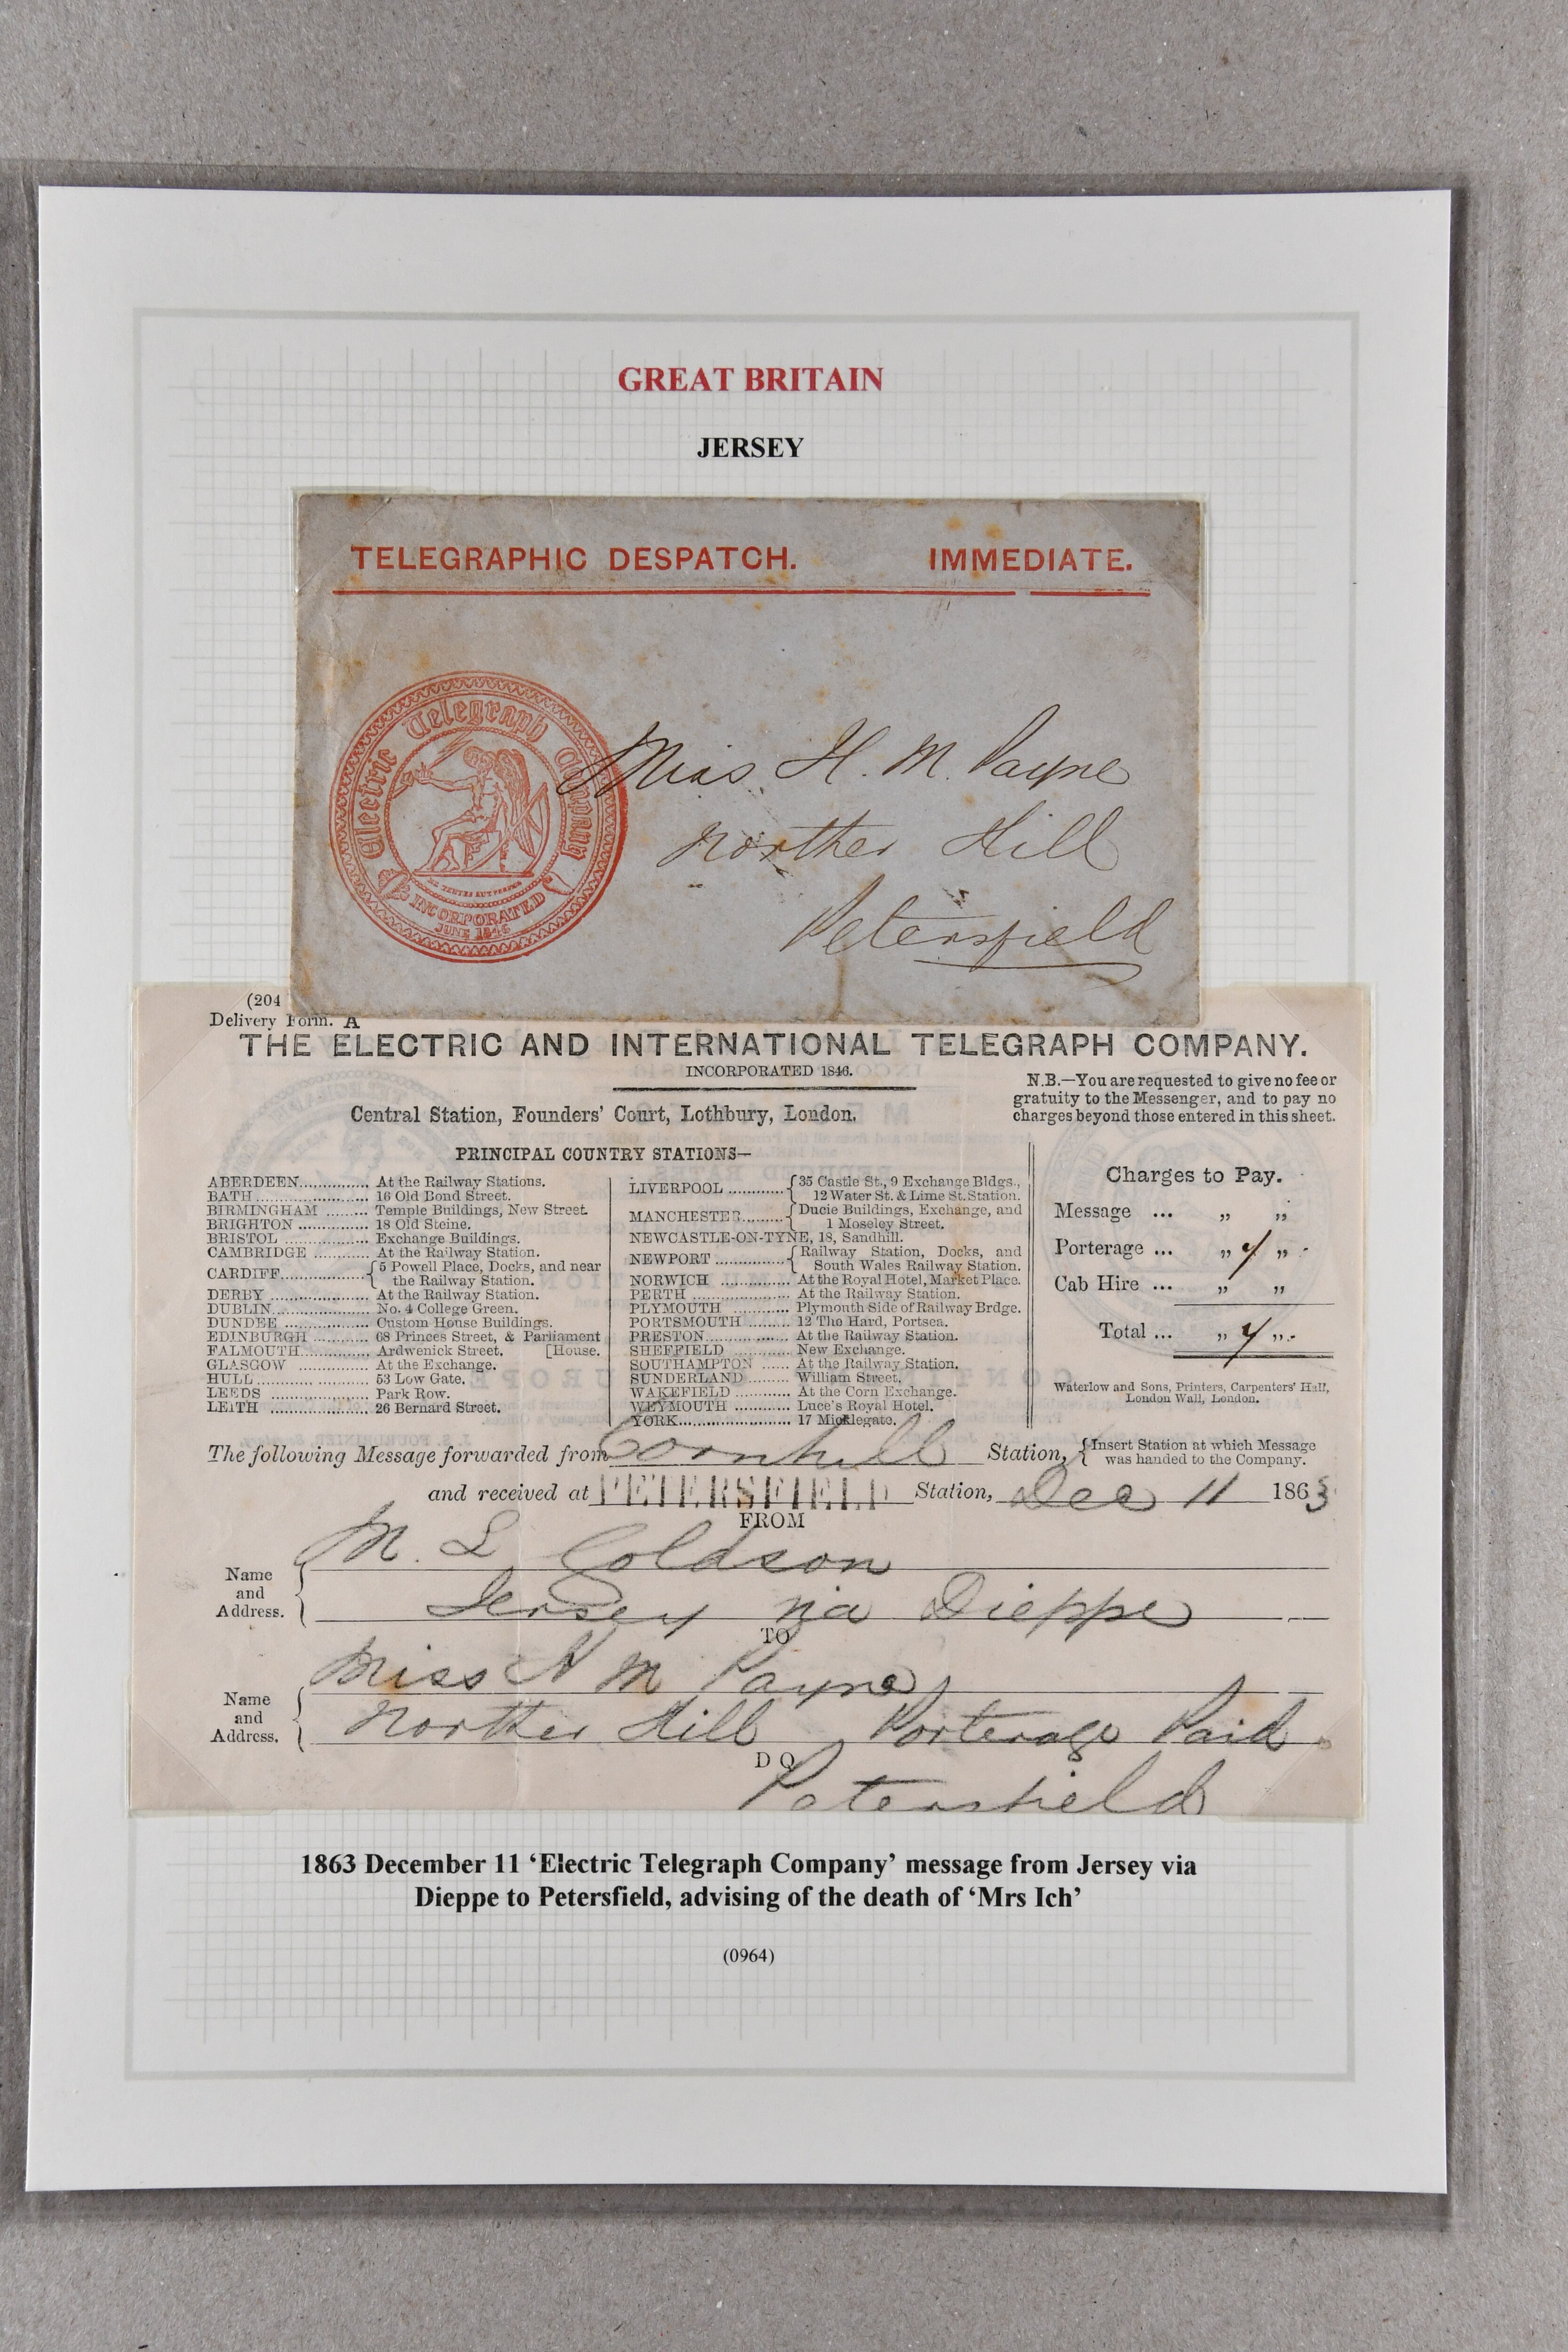 GREAT BRITAIN
JERSEY
TELEGRAPHIC DESPATCH. IMMEDIATE.
Electric Telegraph Company
INCORPORATED
JUNE 1846
Miss H. M. Payne
Norther Hill
Petersfield
(204
Delivery Form. A
THE ELECTRIC AND INTERNATIONAL TELEGRAPH COMPANY.
INCORPORATED 1846.
Central Station, Founders' Court, Lothbury, London.
N.B.—You are requested to give no fee or
gratuity to the Messenger, and to pay no
charges beyond those entered in this sheet.
PRINCIPAL COUNTRY STATIONS—
ABERDEEN............... At the Railway Stations.
BATH........................ 16 Old Bond Street.
BIRMINGHAM ......... Temple Buildings, New Street.
BRIGHTON ............... 18 Old Steine.
BRISTOL .................. Exchange Buildings.
CAMBRIDGE ............ At the Railway Station.
CARDIFF.................. { 5 Powell Place, Docks, and near
the Railway Station.
DERBY ..................... At the Railway Station.
DUBLIN..................... No. 4 College Green.
DUNDEE .................. Custom House Buildings.
EDINBURGH ............ 68 Princes Street, & Parliament
FALMOUTH............... Ardwenick Street. [House.
GLASGOW ............... At the Exchange.
HULL ........................ 53 Low Gate.
LEEDS ..................... Park Row.
LEITH ..................... 26 Bernard Street.
LIVERPOOL ............ { 35 Castle St., 9 Exchange Bldgs.,
12 Water St. & Lime St. Station.
MANCHESTER......... { Ducie Buildings, Exchange, and
1 Moseley Street.
NEWCASTLE-ON-TYNE, 18, Sandhill.
NEWPORT ............... { Railway Station, Docks, and
South Wales Railway Station.
NORWICH ............... At the Royal Hotel, Market Place.
PERTH ..................... At the Railway Station.
PLYMOUTH ............ Plymouth Side of Railway Brdge.
PORTSMOUTH ......... 12 The Hard, Portsea.
PRESTON.................. At the Railway Station.
SHEFFIELD ............ New Exchange.
SOUTHAMPTON ...... At the Railway Station.
SUNDERLAND ......... William Street.
WAKEFIELD ............ At the Corn Exchange.
WEYMOUTH ............ Luce's Royal Hotel.
YORK........................ 17 Micklegate.
Charges to Pay.
Message ... „ „
Porterage ... „ 4 „ -
Cab Hire ... „ „
Total ... „ 4 „ -
Waterlow and Sons, Printers, Carpenters' Hall,
London Wall, London.
The following Message forwarded from Cornhill Station, { Insert Station at which Message
was handed to the Company.
and received at PETERSFIELD Station, Dec 11 1863
FROM
M. L Coldson
Name
and
Address.
Jersey via Dieppe
TO
Miss H M Payne
Name
and
Address.
Norther Hill Porterage Paid
DO
Petersfield
1863 December 11 ‘Electric Telegraph Company’ message from Jersey via
Dieppe to Petersfield, advising of the death of ‘Mrs Ich’
(0964)